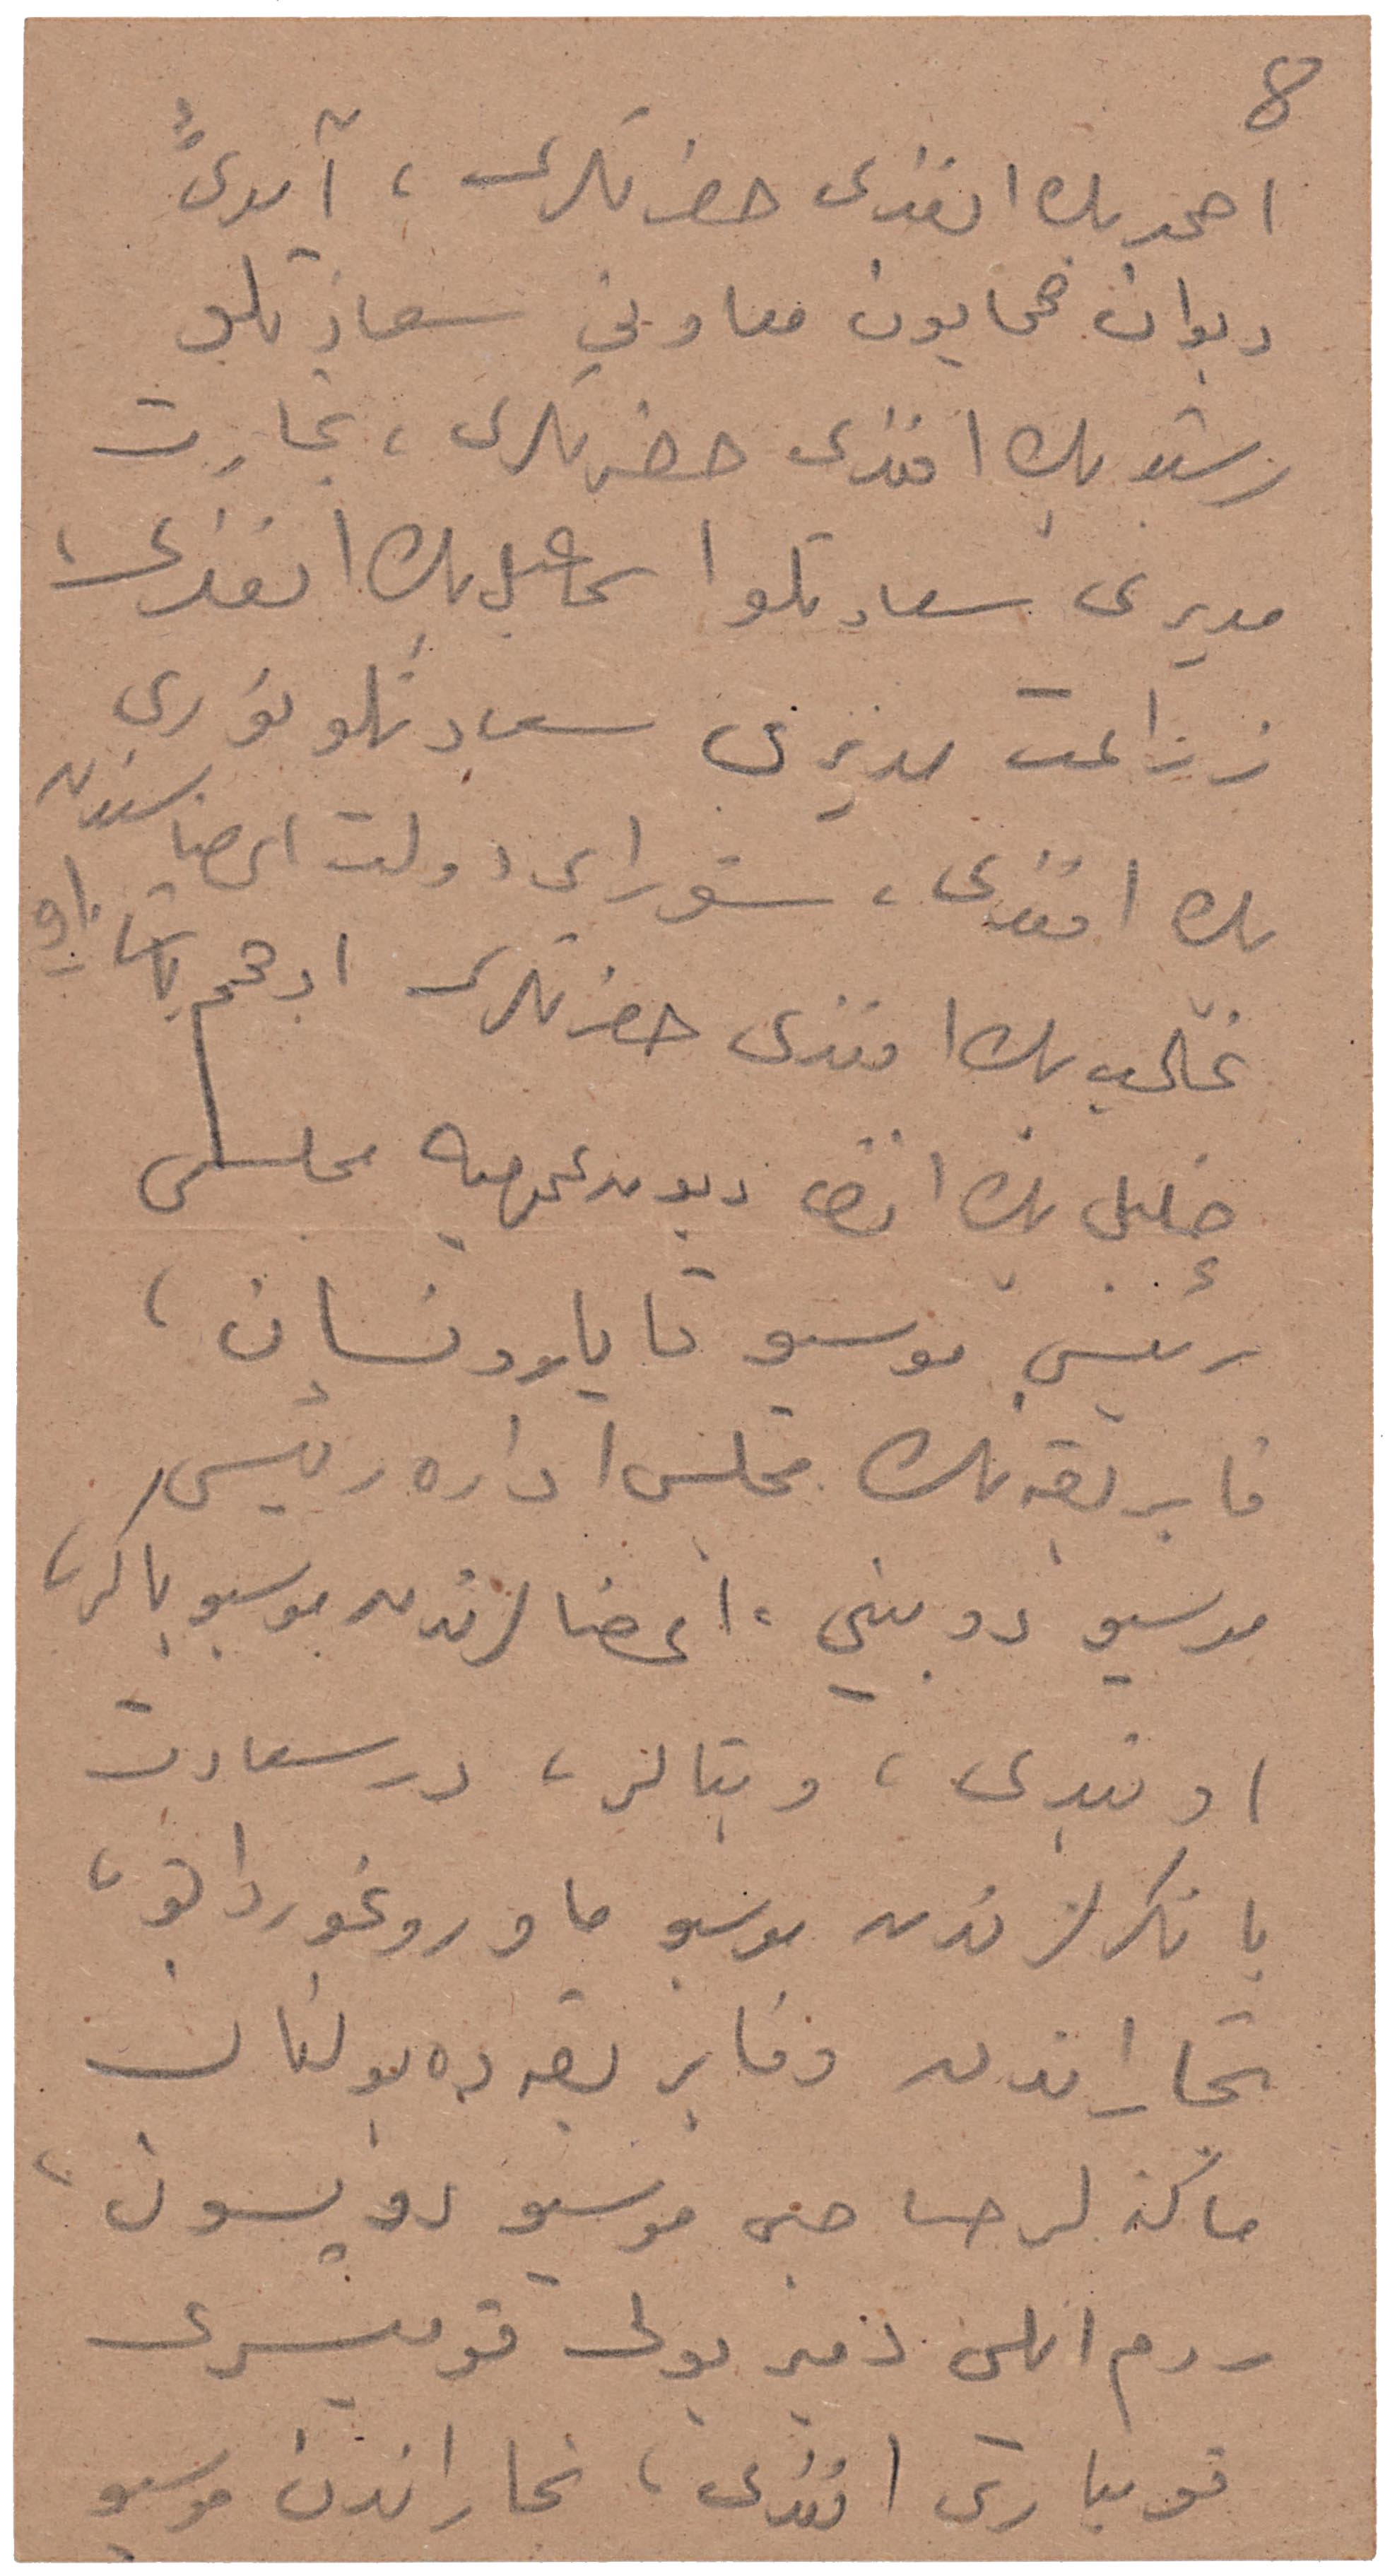 8
احمد بك افندی حضرتلری ، آمدیٔ
دیوان همایون معاونی سعادتلو
رشید بك افندی حضرتلری ، تجارت
مدیری سعادتلو اسماعیل بك افندی ،
زراعت مدیری سعادتلو نوری
بك افندی ، شورای دولت اعضاسندن
غالب بك افندی حضرتلری ادهم پاشا زاده
خلیل بك افندی دیون عمومیه مجلسی
رئیسی موسیو
فابریقه نك مجلس اداره رئیسی
موسیو دوبینی ، اعضالرندن موسیو باكر ،
اوندی ، ویتالر ، درسعادت
بانكرلرندن موسیو ماوروغورداتو ،
تجاراندن وفابریقه ده بولنان
ماكنه لر صاحبی موسیو
روم ایلی دمیر یولی قومیسری
افندی ، تجاراندن موسیو